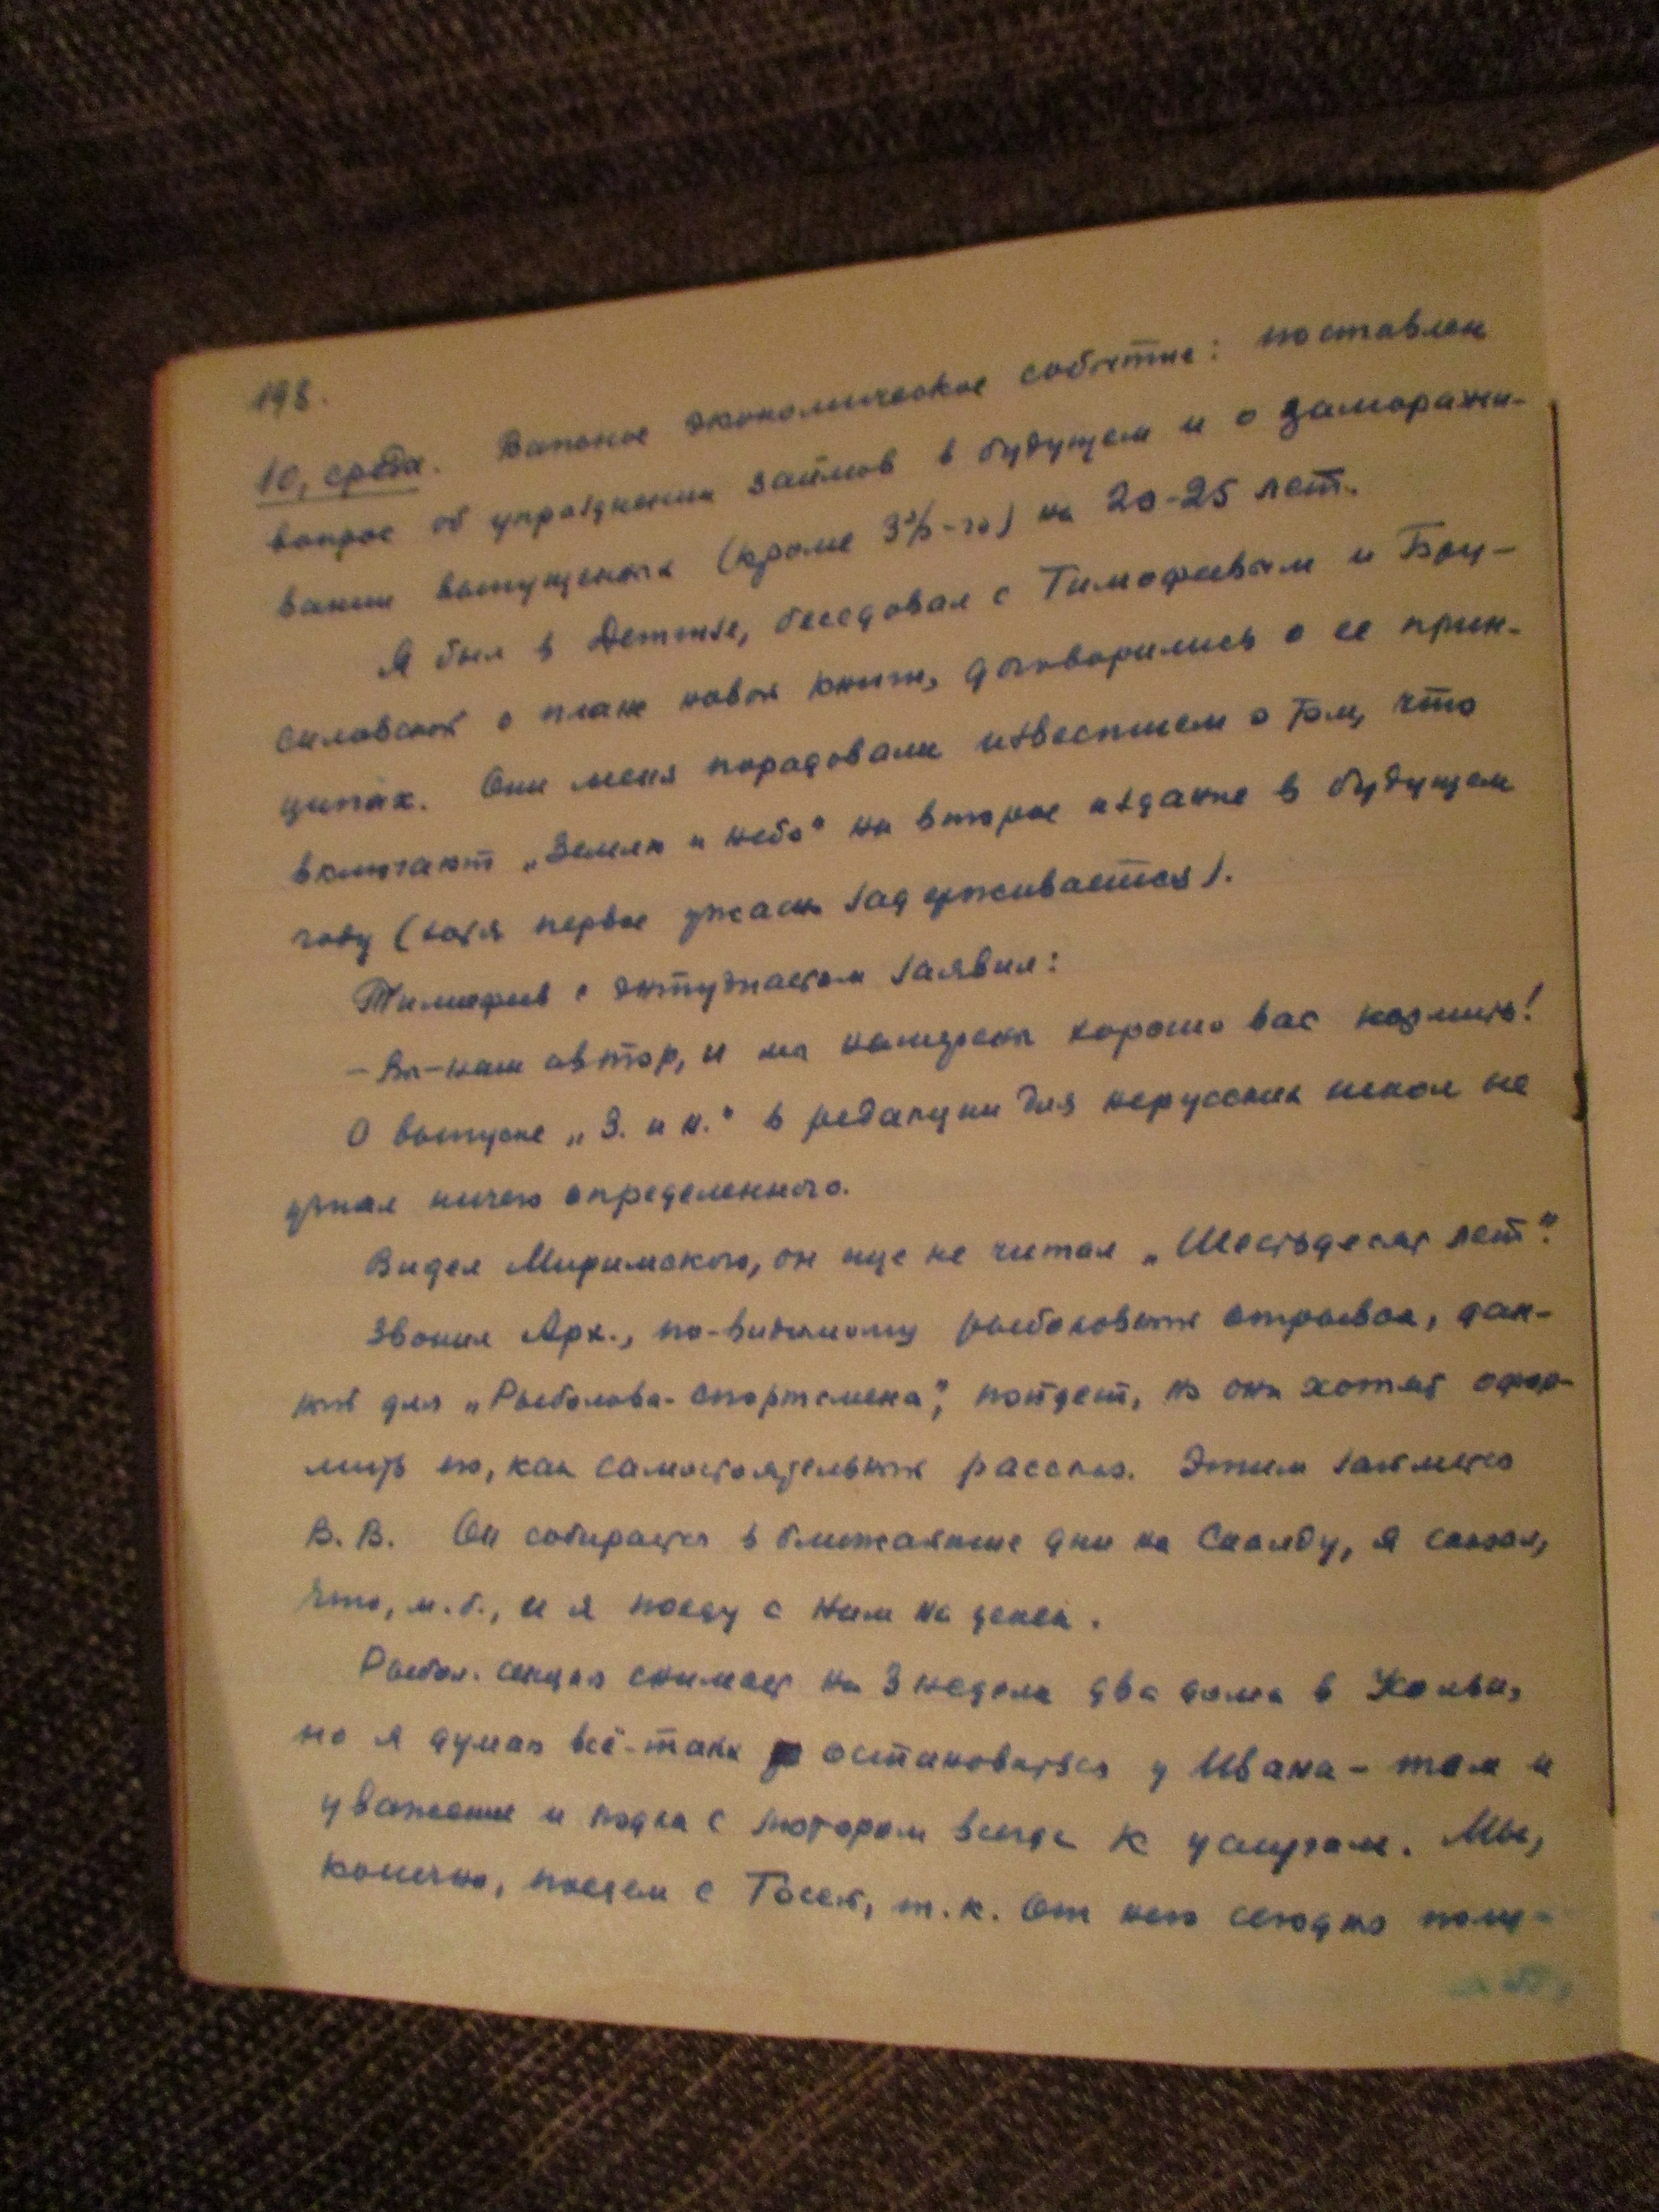 198.
10, среда. Важное экономическое событие: поставлен
вопрос об упразднении займов в будущем и о заморажи-
вании выпущенных (кроме 3%-го) на 20-25 лет.
Я был в Детгизе, беседовал с Тимофеевым и Бру-
силовской о плане новой книги, договорились о ее прин-
ципах. Они меня порадовали известием о том, что
включают „Землю и небо" на второе издание в будущем
году (хотя первое ужасно задерживается).
Тимофеев с энтузиазмом заявил:
- Вы - наш автор, и мы намерены хорошо вас кормить!
О выпуске „З. и н." в редакции для нерусских школ не
узнал ничего определенного.
Видел Миримского, он еще не читал „Шестьдесят лет".
Звонил Арх., по-видимому рыболовный отрывок, дан-
ный для „Рыболова-спортсмена", пойдет, но они хотят офор-
мить его, как самостоятельный рассказ. Этим займется
В. В. Он собирается в ближайшие дни на Скалду, я сказал,
что, м. б., и я поеду с ним на денек.
Рыбол. секция снимает на 3 недели два дома в
но я думаю всё-таки остановиться у Ивана - там и
уважение и лодка с мотором всегда к услугам. Мы,
конечно, поедем с Тосей, т. к. от него сегодня полу-